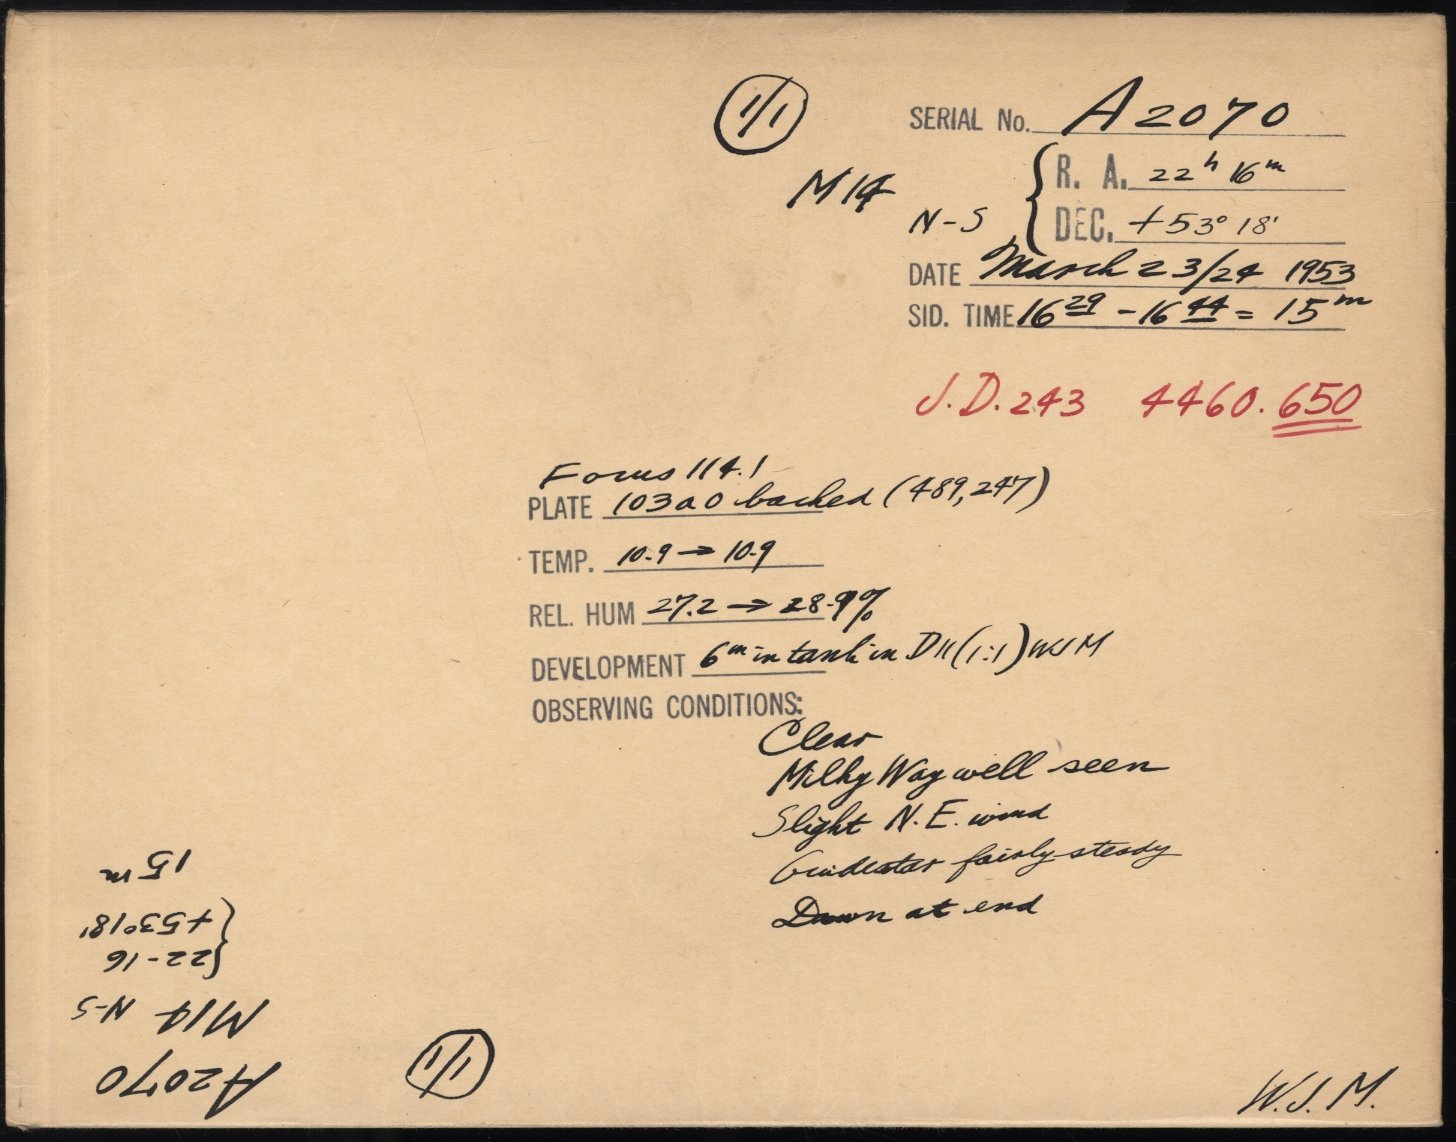 1/1
SERIAL No. A2070
M14
N-S
R. A. 22ʰ 16ᵐ
DEC. +53° 18'
DATE March 23/24 1953
SID. TIME 16 29 - 16 44 = 15ᵐ
J.D. 243 4460.650
Focus 114.1
PLATE 103aO backed (489,247)
TEMP. 10.9 → 10.9
REL. HUM 27.2 → 28.9%
DEVELOPMENT 6ᵐ in tank in D11 (1:1) WJM
OBSERVING CONDITIONS:
Clear
Milky Way well seen
Slight N.E. wind
Guidestar fairly steady
Dawn at end
A2070
M14 N-S
22-16
+53°18'
15 m
1/1
W.J.M.